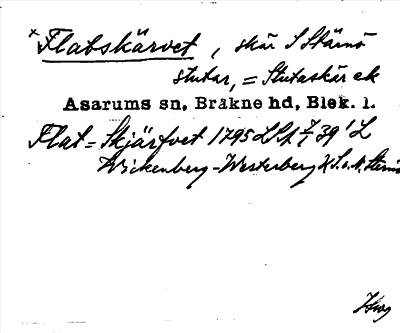 × Flatskärvet, skär S Stärnö
stutar, = Stutaskär ek
Asarums sn, Bräkne hd, Blek. l.
Flat = Skjärfvet 1795 LSA 39' L
Wickenberg-Westerberg K S. o. N. Stärnö